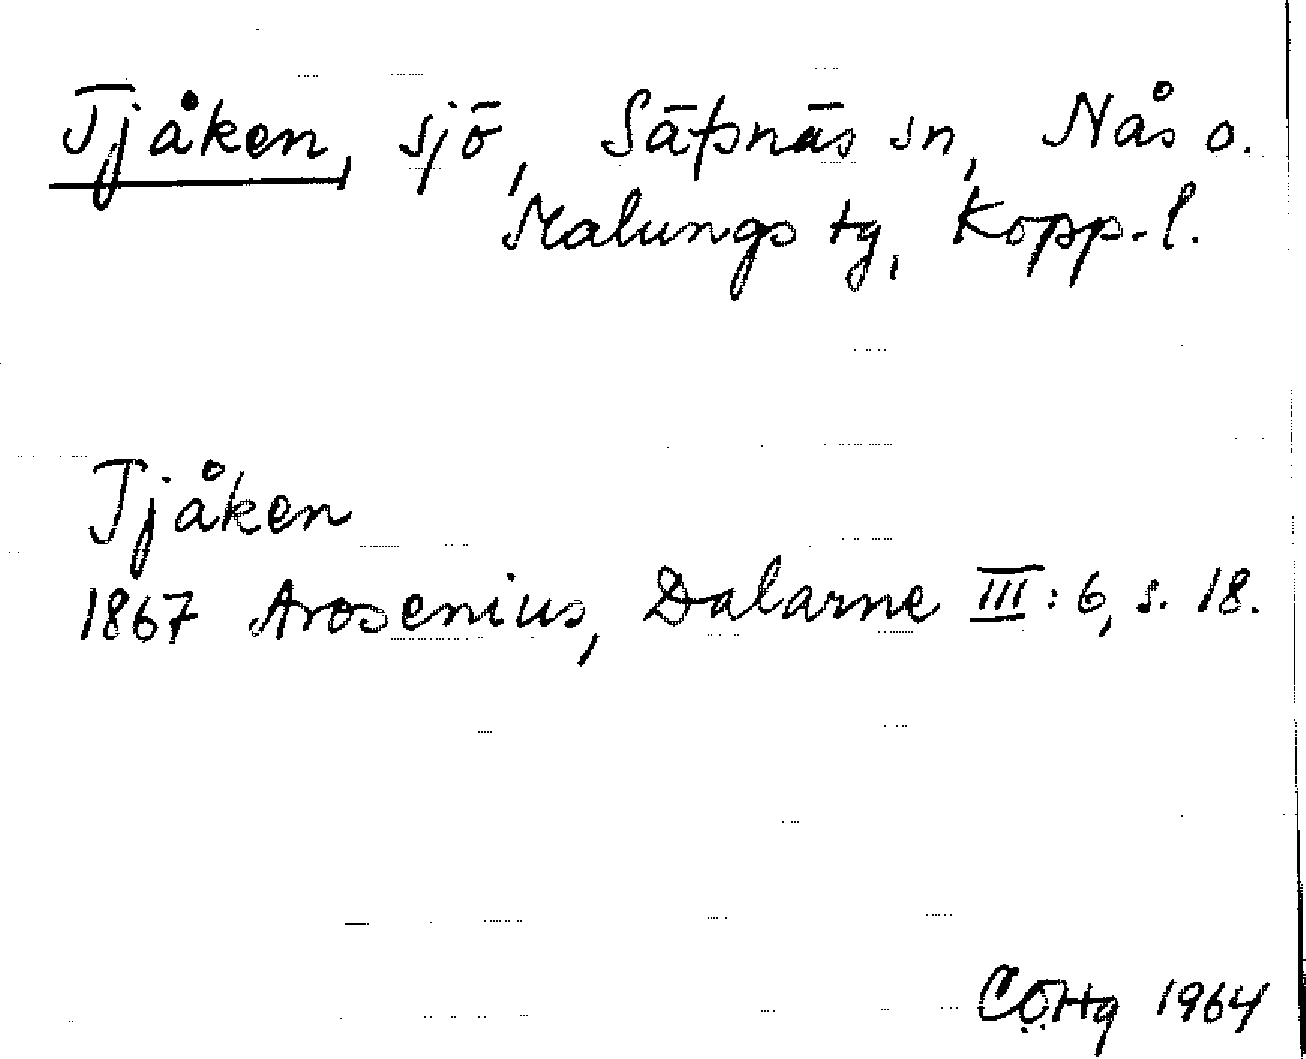 Tjåken, sjö, Säfsnäs sn, Nås o.
Malungs tg, Kopp. l.
Tjåken
1867 Arosenius, Dalarne III: 6, s. 18.
CÖHg 1964